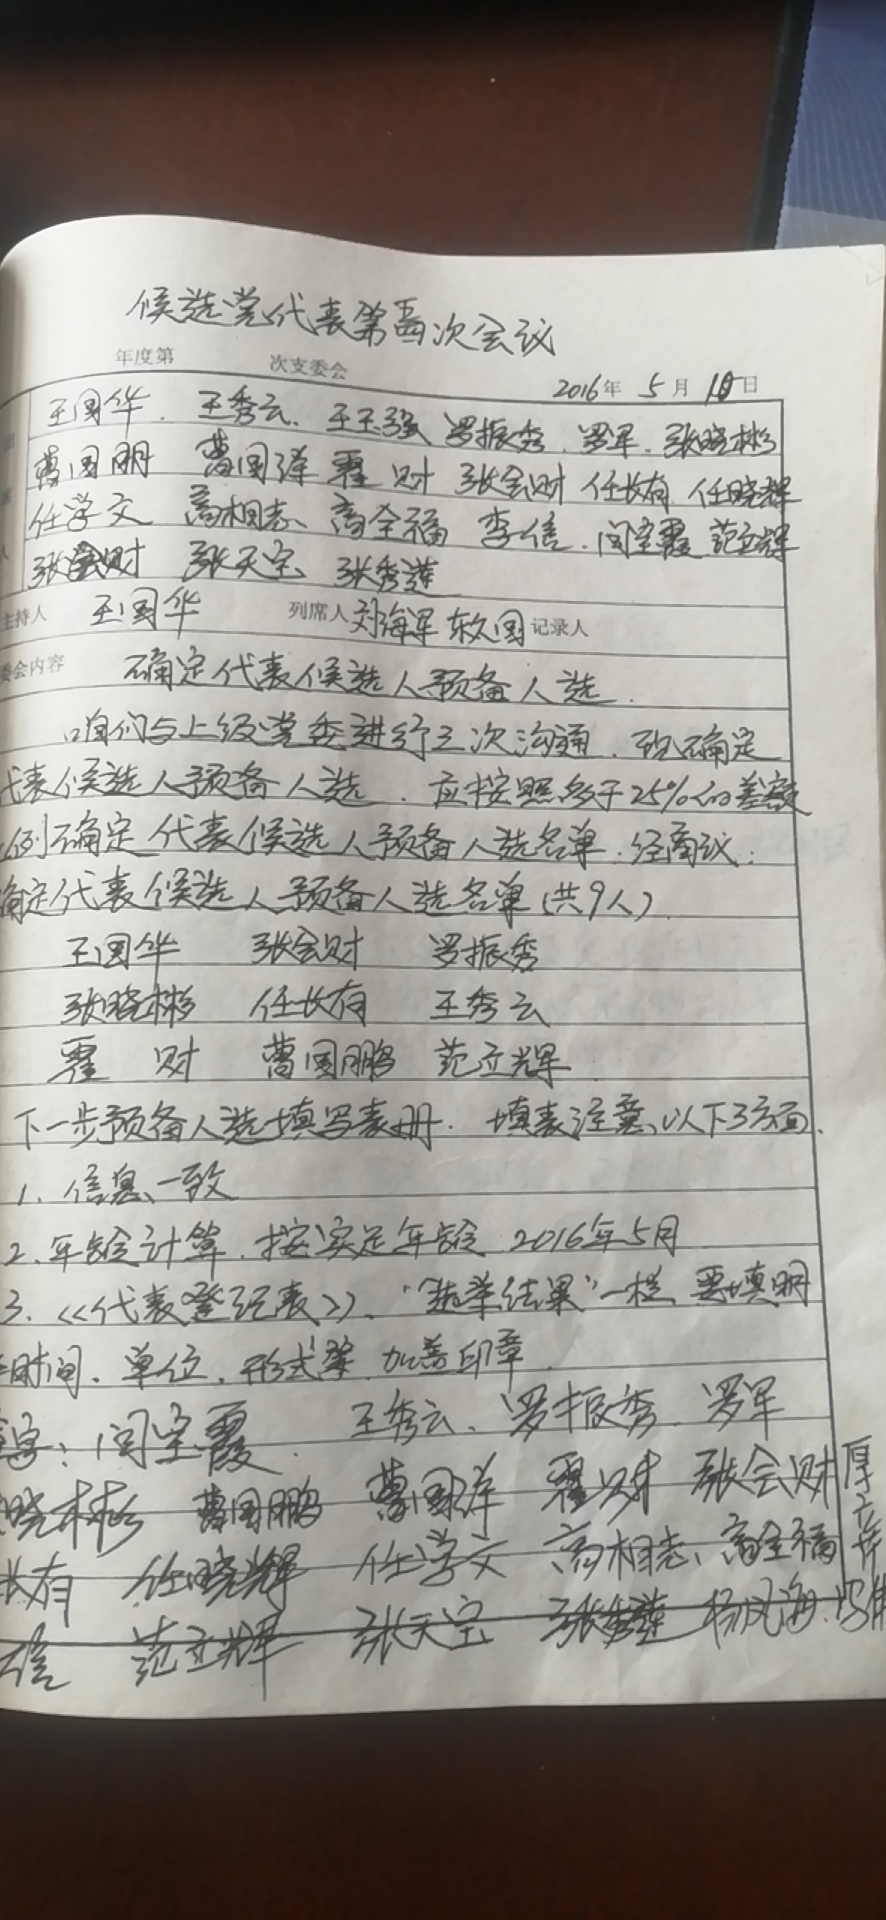 候选党代表第四次会议
年度第 次支委会
2016年 5月 10日
出 王国华. 王秀云. 王玉强 罗振秀. 罗军. 张晓彬
席 曹国朋 曹国洋 霍财 张会财 任长有 任晓辉
任学文 高相志、高全福 李信. 闫宝霞 范立辉
人 张会财 张天宝 张秀莲
主持人 王国华 列席人 刘海军 东久国 记录人
委会内容 确定代表候选人预备人选.
咱们与上级党委进行三次沟通. 现确定
代表候选人预备人选. 应按照多于25%的差额
比例确定代表候选人预备人选名单. 经商议:
确定代表候选人预备人选名单(共9人)
王国华 张会财 罗振秀
张晓彬 任长有 王秀云
霍财 曹国鹏 范立辉
下一步预备人选填写表册. 填表注意以下3方面.
1. 信息一致
2. 年龄计算. 按实足年龄 2016年5月
3. <<代表登记表>>、"选举结果"一栏 要填明
时间. 单位. 形式等 加盖印章.
签字: 闫宝霞. 王秀云、罗振秀. 罗军
晓彬 曹国鹏 曹国洋 霍财 张会财
长有 任晓辉 任学文 高相志、高全福
信 范立辉 张天宝 张秀莲 杨凤海